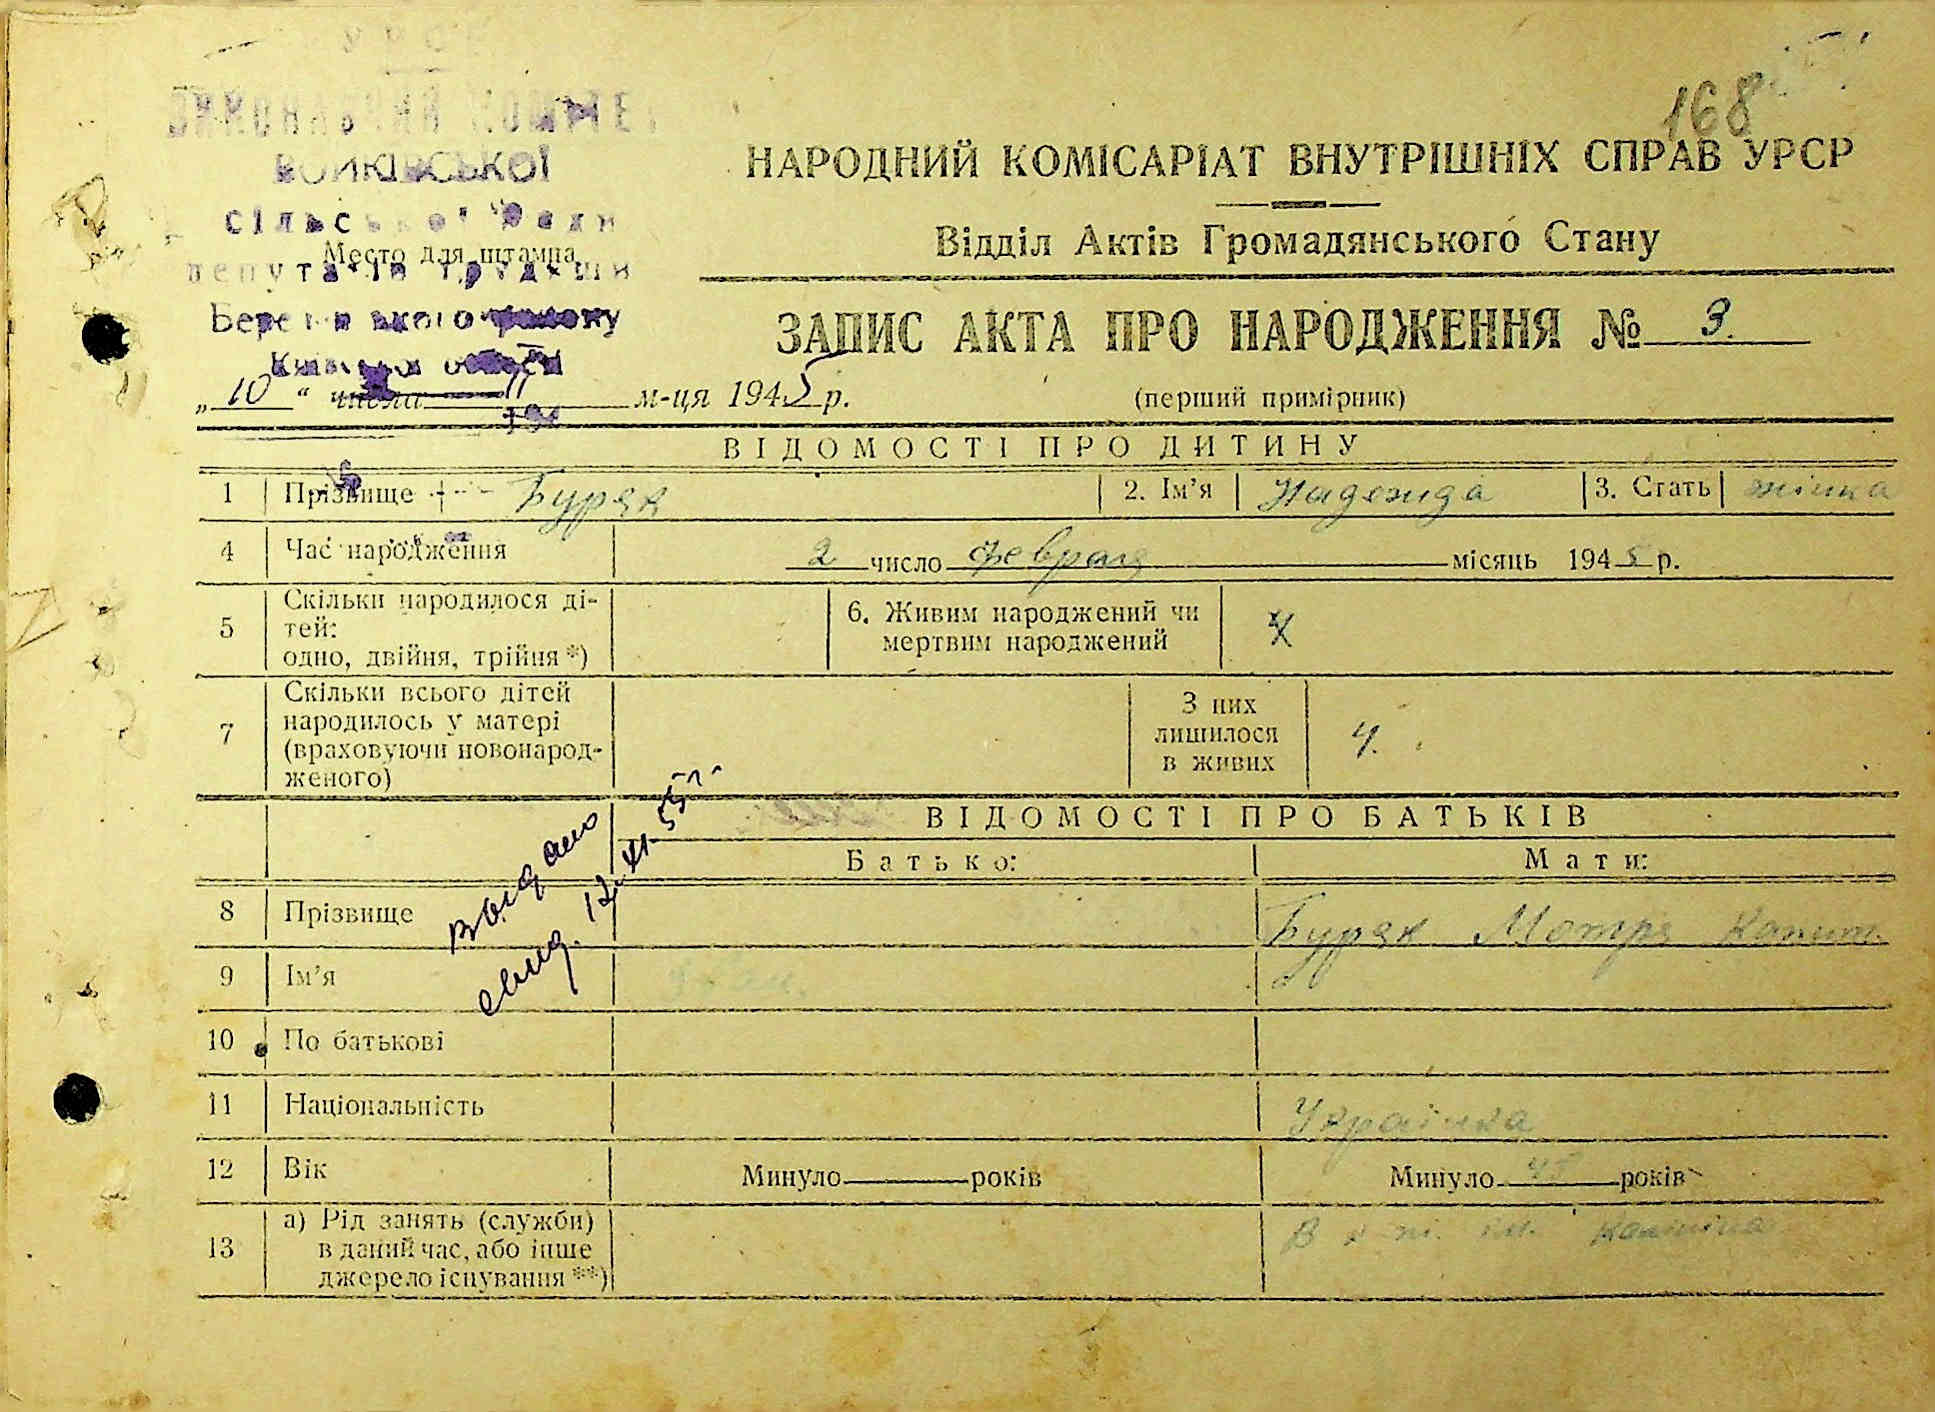 168
УРСР
ВИКОНАВЧИЙ КОМІТЕТ
ВОЙКІВСЬКОЇ
сільської Ради
Место для штампа
депутатів трудящих
Березанського району
Київської області
194
НАРОДНИЙ КОМІСАРІАТ ВНУТРІШНІХ СПРАВ УРСР
Відділ Актів Громадянського Стану
ЗАПИС АКТА ПРО НАРОДЖЕННЯ № 3.
„ 10 “ числа II м-ця 1945 р. (перший примірник)
ВІДОМОСТІ ПРО ДИТИНУ
1 Прізвище Буряк 2. Ім’я Надежда 3. Стать жінка
4 Час народження 2 число февраля місяць 1945 р.
5 Скільки народилося ді-
тей:
одно, двійня, трійня *)
6. Живим народжений чи
мертвим народжений
7 Скільки всього дітей
народилось у матері
(враховуючи новонарод-
женого)
З них
лишилося
в живих
4.
ВІДОМОСТІ ПРО БАТЬКІВ
Батько: Мати:
выдано
свид. 12.XI-55 г.
8 Прізвище Буряк Мотря Капит.
9 Ім’я
10 По батькові
11 Національність Українка
12 Вік Минуло років Минуло 45 років
13 а) Рід занять (служби)
в даний час, або інше
джерело існування **)